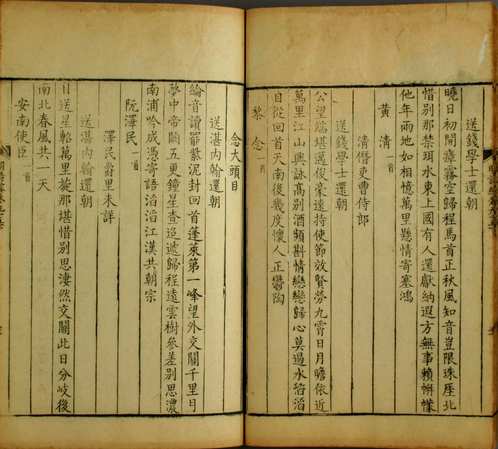 送錢學士還朝
曉日初開瘴霧空歸程馬首正秋風知音豈限珠崖北
惜別那禁珥水東上國有人還獻納遐方無事賴帡幪
他年兩地如相憶萬里懸情寄塞鴻
黄清一首
清僭吏曹侍郎
送錢學士還朝
公望端堪邁俊豪遠持使節效賢勞九霄日月瞻依近
萬里江山興詠高別酒頻斟情戀戀歸心莫過水滔滔
自從回首天南後幾度懷人正鬱陶
黎念一首
念大頭目
送湛内翰還朝
綸音讀罷紫泥封回首蓬萊第一峰望外交關千里日
夢中帝闕五更鐘星查迢遞歸程遠雲樹參差別思濃
南浦吟成憑寄語滔滔江漢共朝宗
阮澤民一首
澤民爵里未詳
送湛内翰還朝
目送星軺萬里旋那堪惜別思淒然交關此日分岐後
南北春風共一天
安南使臣一首